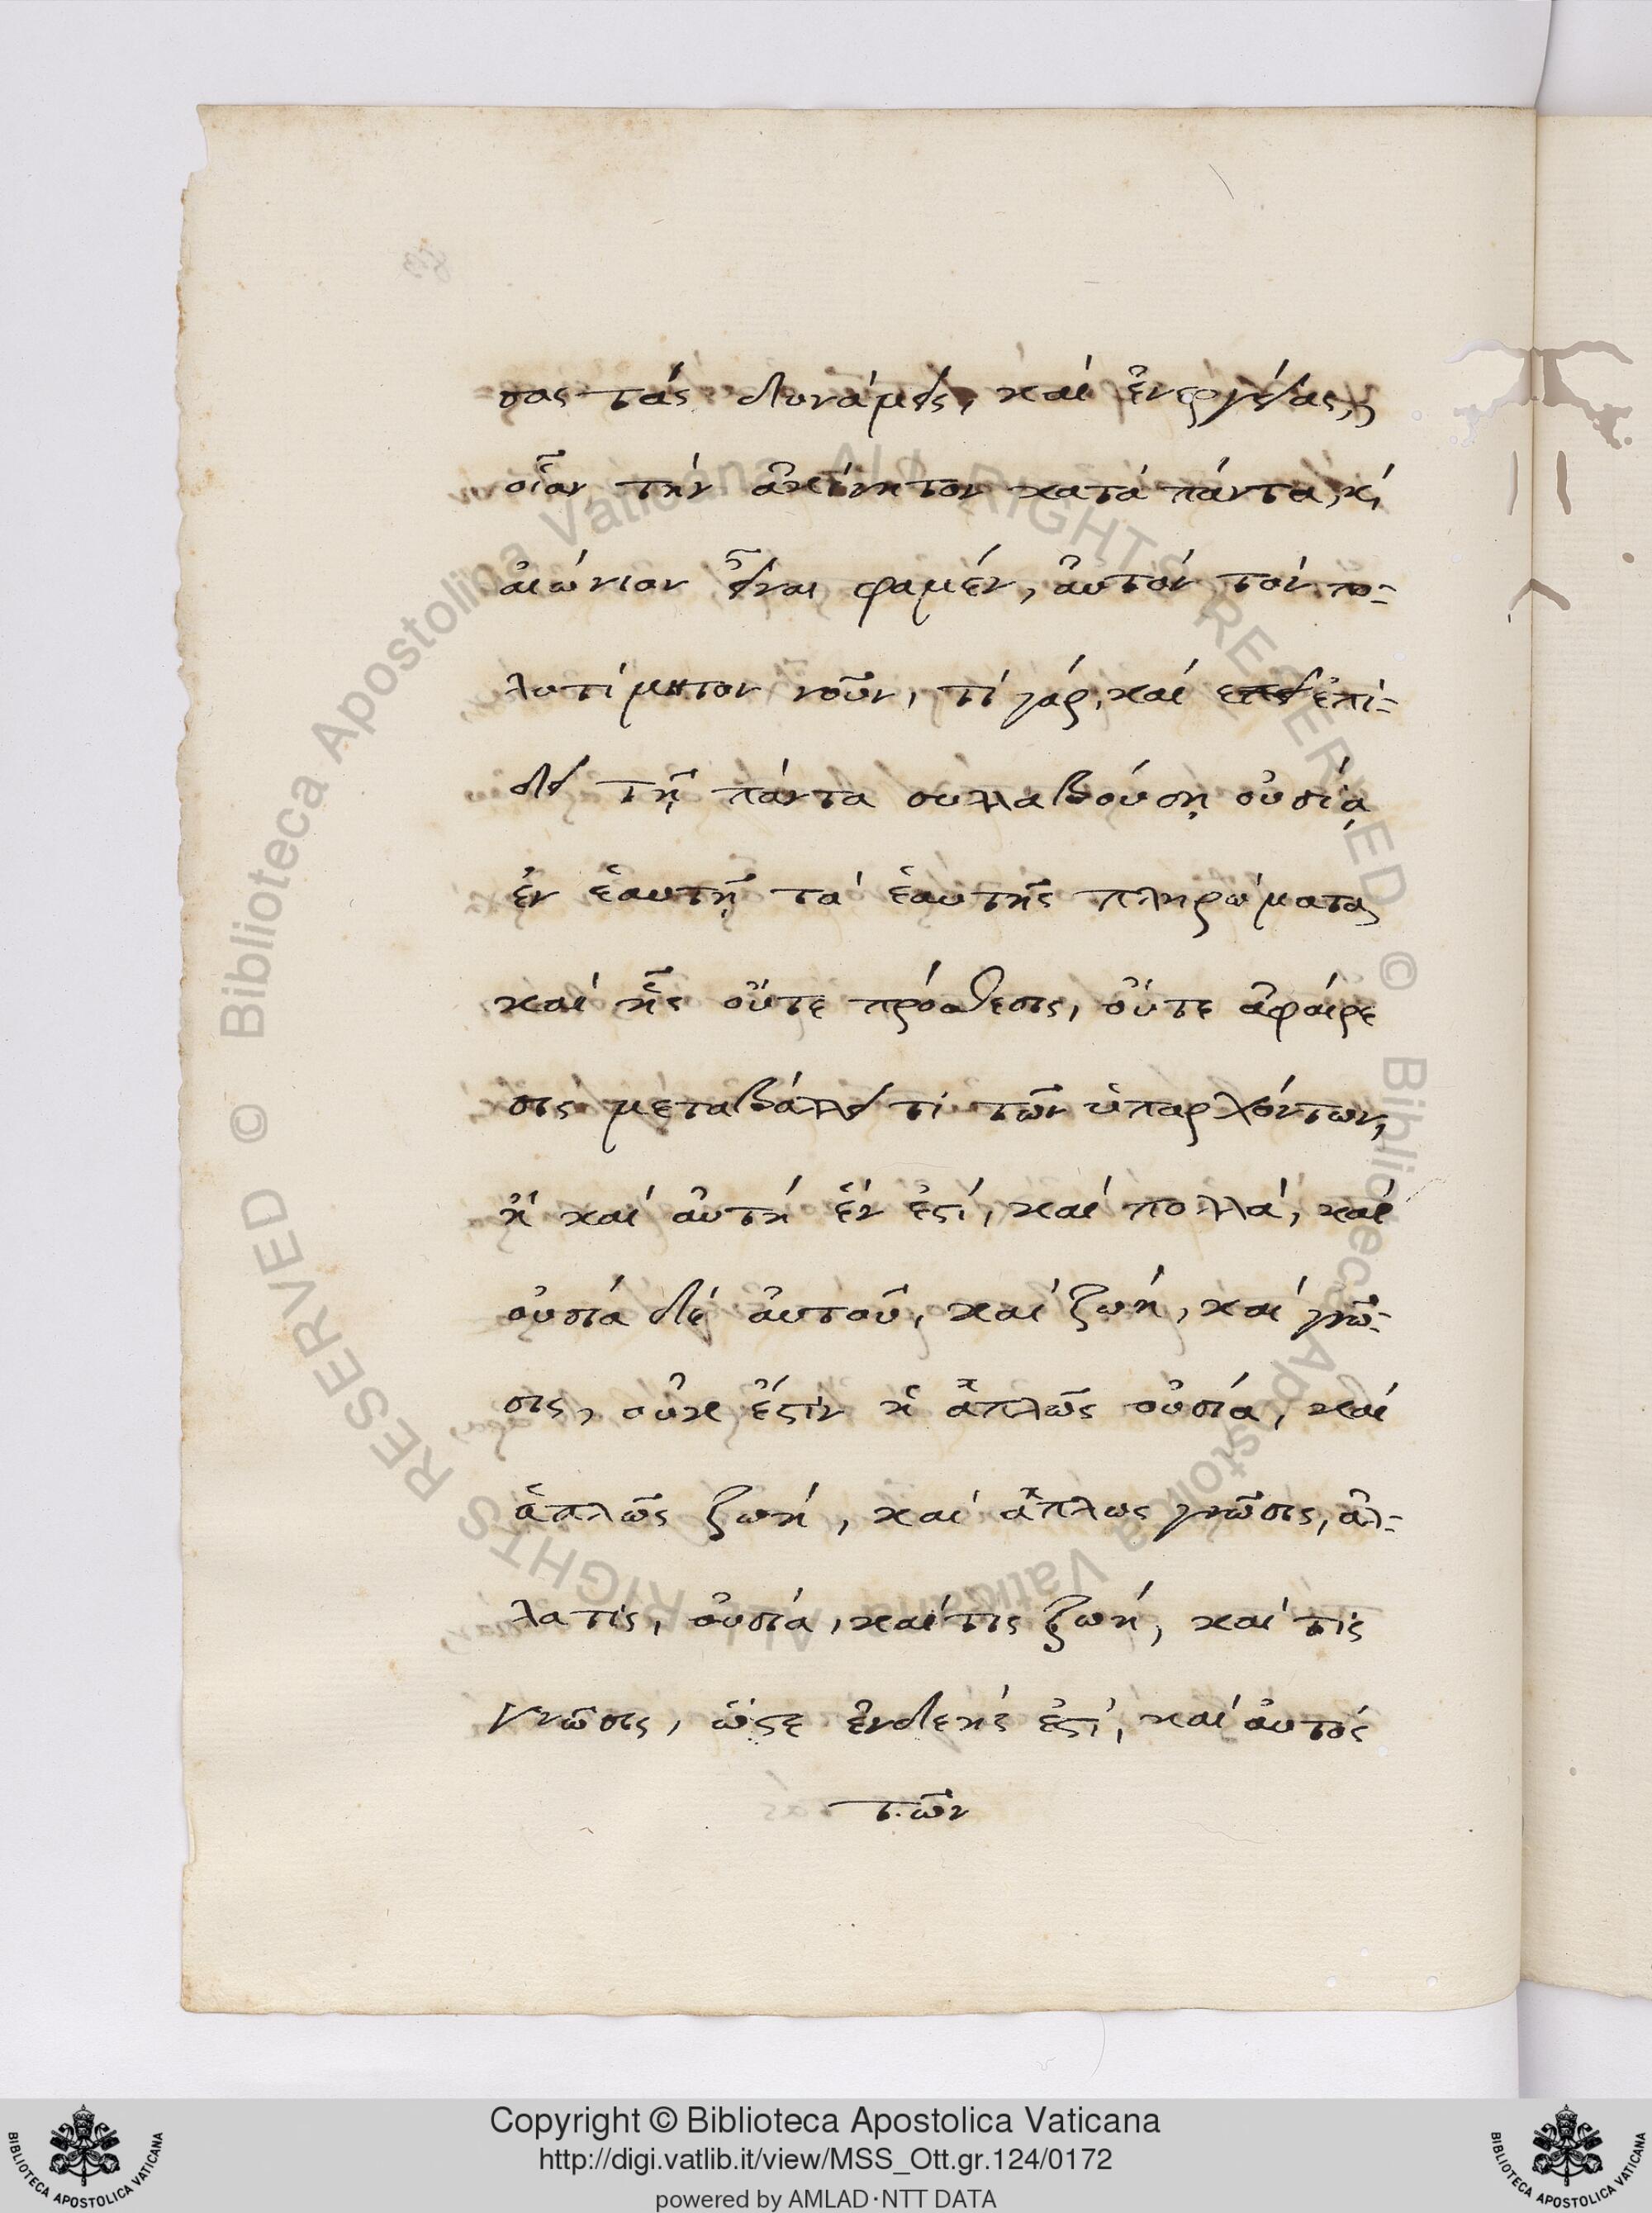 σας τάς δυνάμεις, καί ἐνεργείας,
οἷαν τήν ἀκίνητον κατά πάντα, κ́
αἰώνιον εἶναι φαμέν, ἀυτόν τόν πο-
λυτίμητον νοῦν, τί γάρ, καί ἐπι-
δεῖ τῇ πάντα συλλαβούσῃ οὐσίᾳ
ἐν ἑαυτῇ τά ἑαυτῆς πληρώματα
καί ἧς οὔτε πρόσθεσις, οὔτε ἀφαίρε
σις μεταβάλλει τί τῶν ὑπαρχόντων,
ἤ καί ἀυτή ἕν ἐστί, καί πολλά, καί
οὐσία δέ ἀυτοῦ, καί ζωή, καί γνῶ-
σις, οὐκ ἔστιν ἡ ἁπλῶς οὐσία, καί
ἁπλῶς ζωή, καί ἅπλως γνῶσις, ἀλ-
λα τίς, οὐσία, καί τις ζωή, καί τίς
γνῶσις, ὥστε ἐνδεής ἐστί, καί ἀυτός
τῶν
Copyright © Biblioteca Apostolica Vaticana
http://digi.vatlib.it/view/MSS_Ott.gr.124/0172
powered by AMLAD·NTT DATA
BIBLIOTECA APOSTOLICA VATICANA
BIBLIOTECA APOSTOLICA VATICANA
© Biblioteca Apostolica Vaticana ALL RIGHTS RESERVED
© Biblioteca Apostolica Vaticana ALL RIGHTS RESERVED